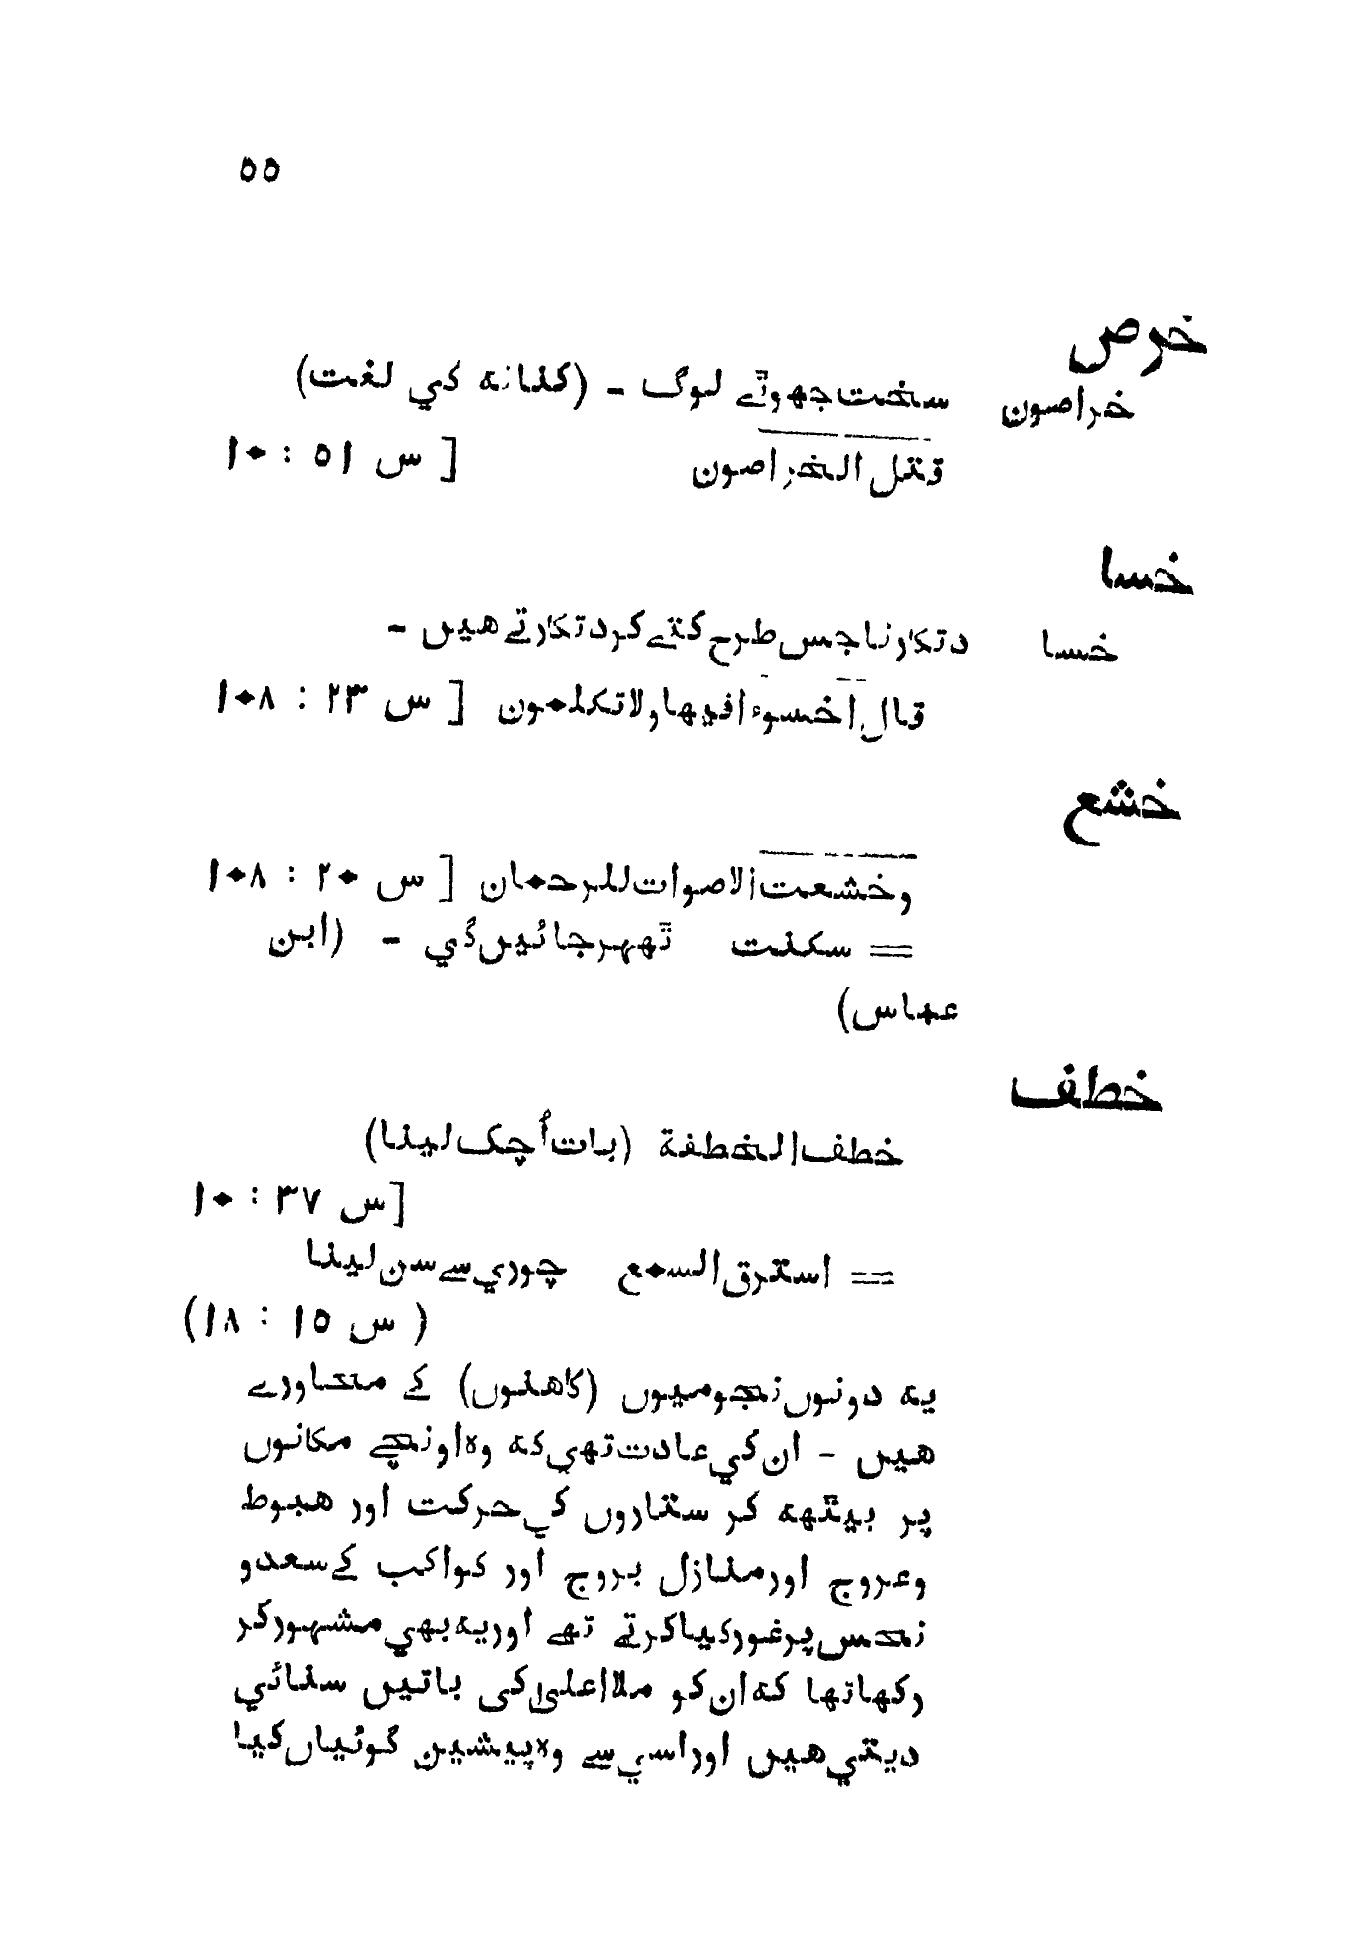 ٥٥
خرص
خراصون سخت جھوٹے لوگ - (کنانہ کی لغت)
قتل الخراصون [ س ٥١ : ١٠
خسا
خسا دتکارنا جس طرح کتے کر دتکارتے ھیں -
قال اخسوء افیھا ولا تکلمون [ س ٢٣ : ١٠٨
خشع
وخشعت الاصوات للرحمان [ س ٢٠ : ١٠٨
== سکنت ٹھہر جائیں گی - (ابن
عباس)
خطف
خطف الخطفة (بات اُچک لینا)
[س ٣٧ : ١٠
== استرق السمع چوری سے سن لینا
( س ١٥ : ١٨)
یہ دونوں نجومیوں (کاھنوں) کے محاورے
ھیں - ان کی عادت تھی کہ وہ اونچے مکانوں
پر بیٹھہ کر ستاروں کی حرکت اور ھبوط
وعروج اور منازل بروج اور کواکب کے سعد و
نحس پر غور کیا کرتے تھے اور یہ بھی مشہور کر
رکھا تھا کہ ان کو ملا اعلیٰ کی باتیں سنائی
دیتی ھیں اور اسی سے وہ پیشین گوئیاں کیا